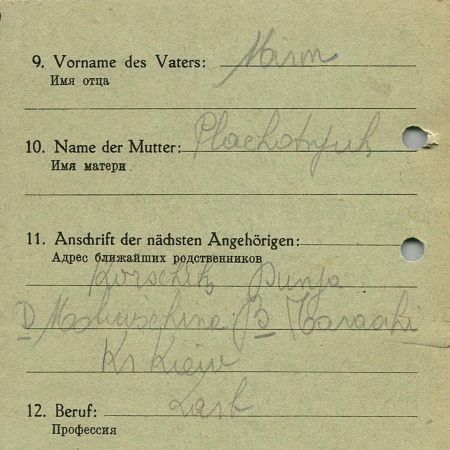 9. Vorname des Vaters:
Имя отца
10. Name der Mutter: Plachotnjuk
Имя матери
11. Anschrift der nächsten Angehörigen:
Адрес ближайших родственников
Dunja
D B
Kr Kiew
12. Beruf:
Профессия